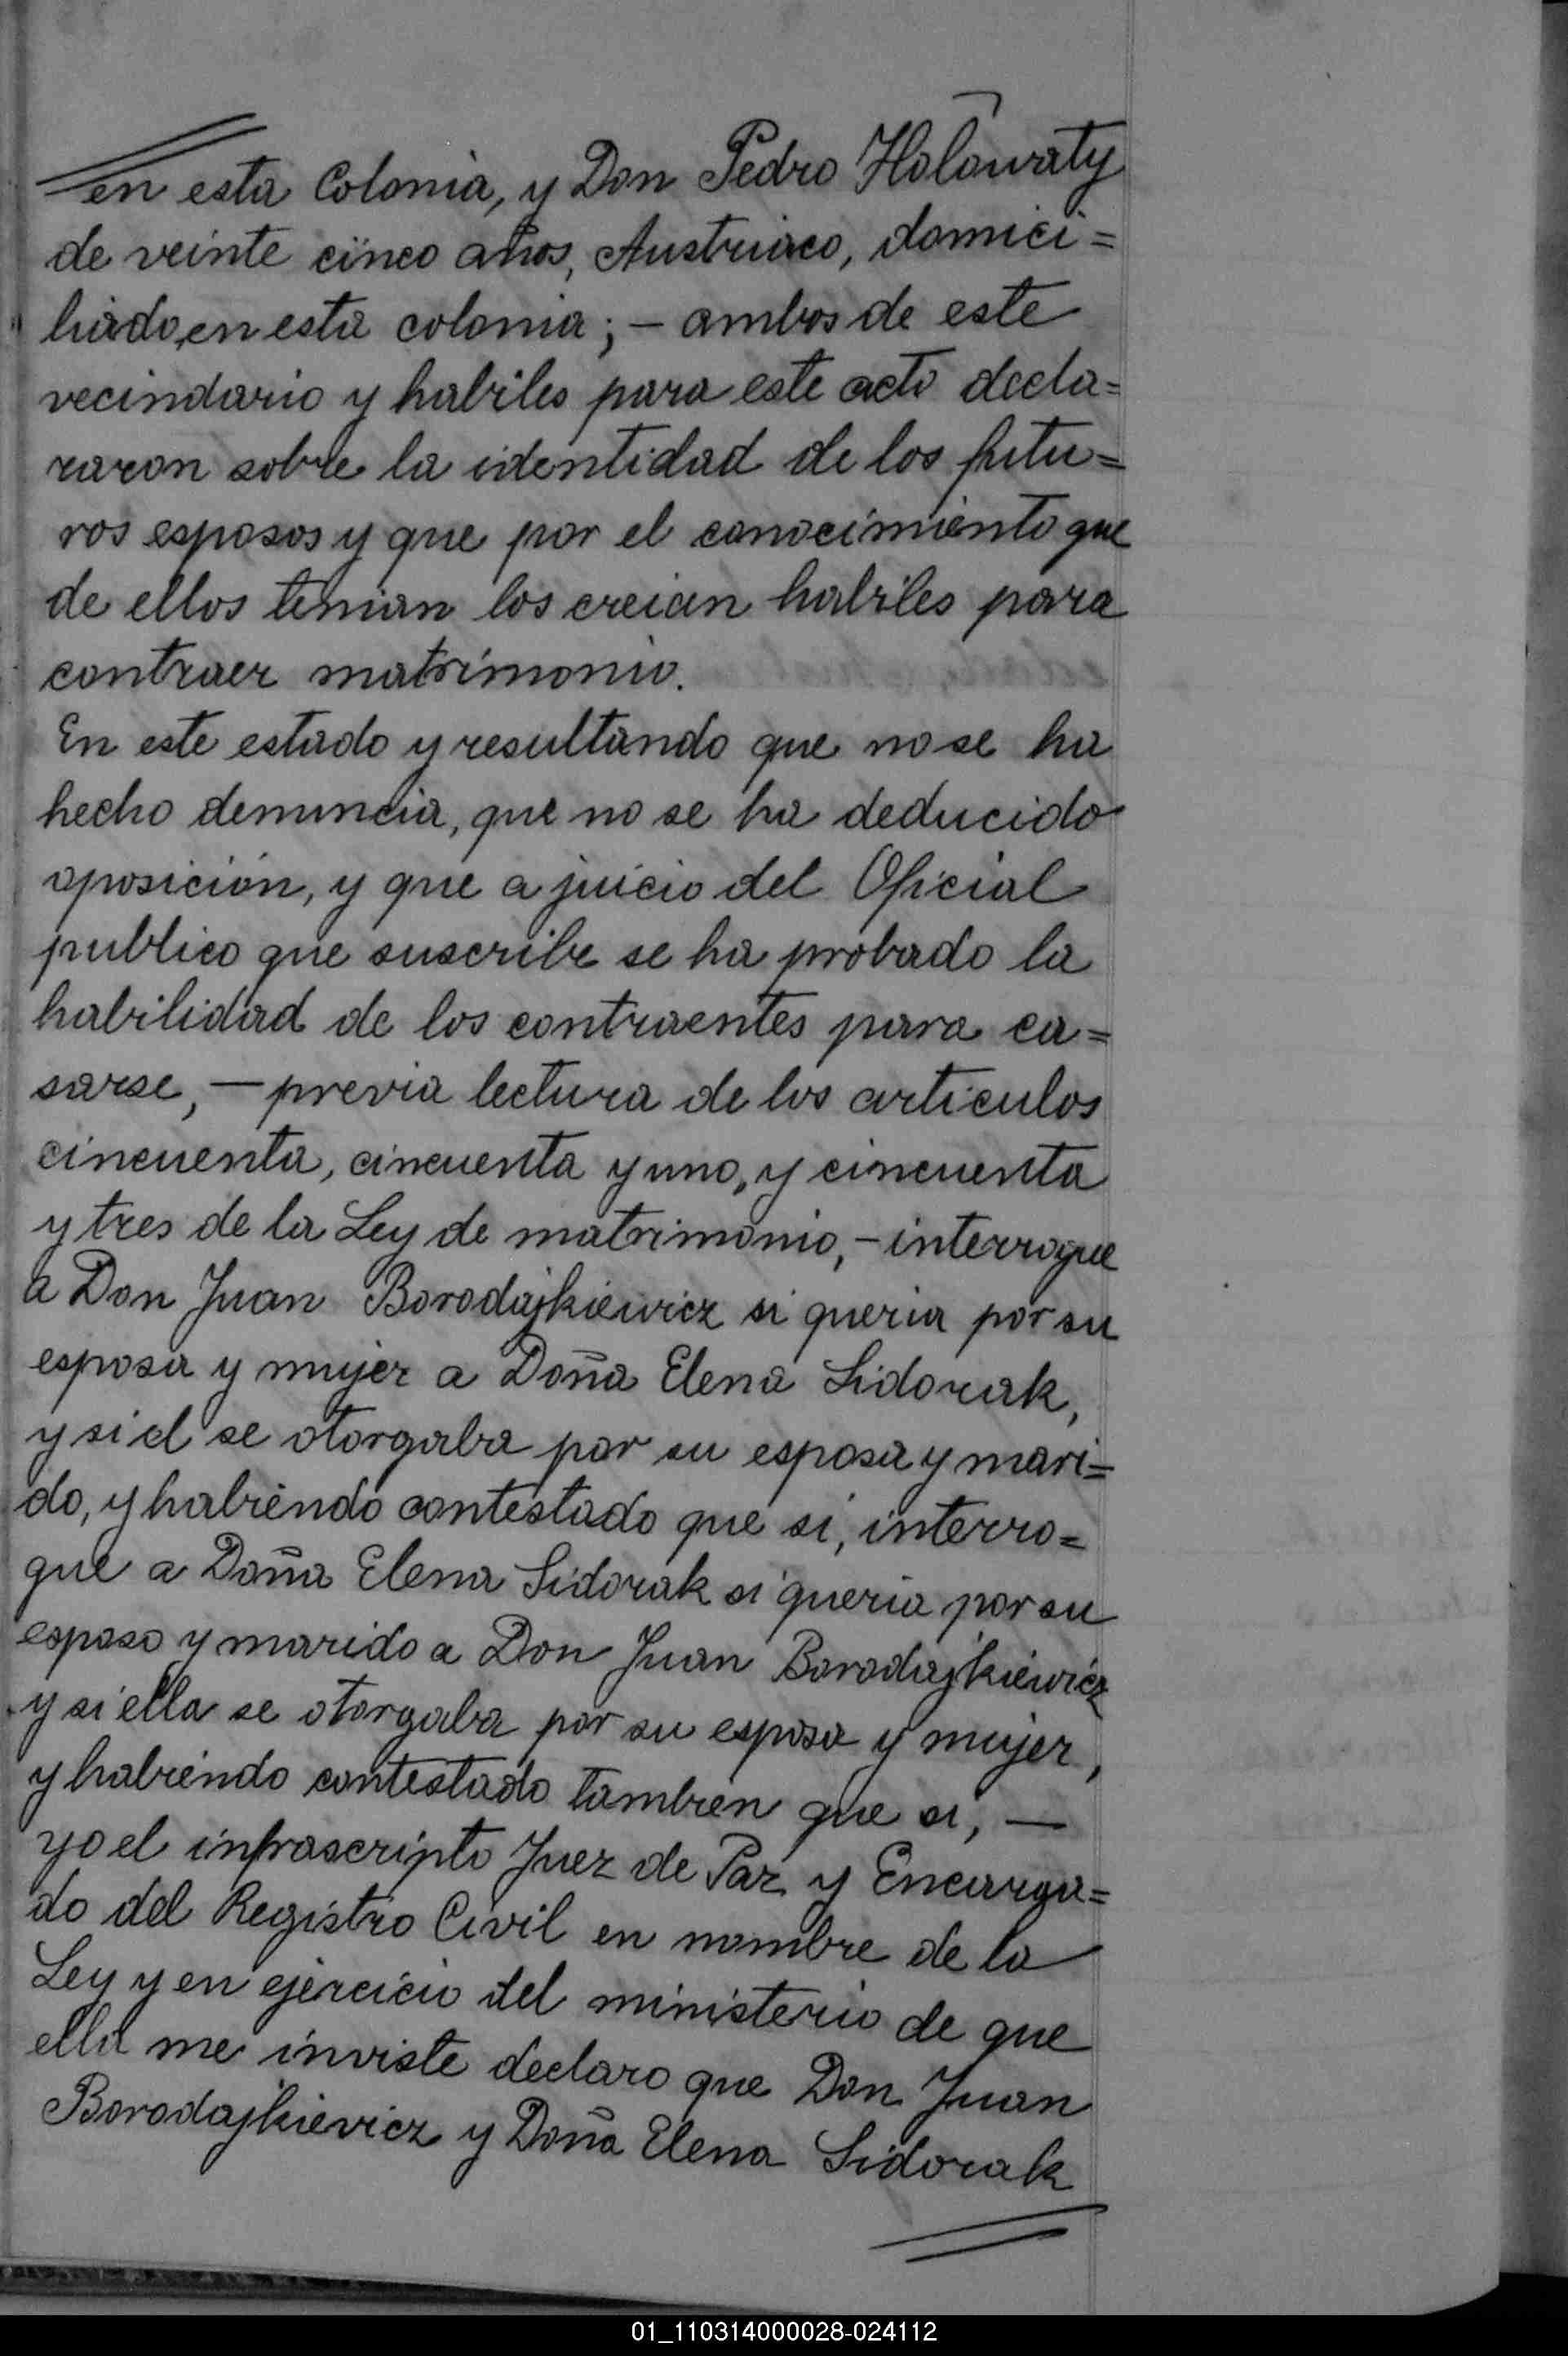 en esta Colonia, y Don Pedro Holowaty
de veinte cinco años, Austriaco, domici=
liado, en esta colonia; – ambos de este
vecindario y habiles para este acto decla=
raron sobre la identidad de los futu=
ros esposos y que por el conocimiento que
de ellos tenian los creian habiles para
contraer matrimonio.
En este estado y resultando que no se ha
hecho denuncia, que no se ha deducido
oposición, y que a juicio del Oficial
publico que suscribe se ha probado la
habilidad de los contraentes para ca=
sarse, – previa lectura de los articulos
cincuenta, cincuenta y uno, y cincuenta
y tres de la Ley de matrimonio, – interrogue
a Don Juan Borodajkiewicz si queria por su
esposa y mujer a Doña Elena Sidorak,
y si el se otorgaba por su esposa y mari=
do, y habiendo contestado que si, interro=
gue a Doña Elena Sidorak si queria por su
esposo y marido a Don Juan Borodajkiewicz
y si ella se otorgaba por su esposa y mujer,
y habiendo contestado tambien que si, –
yo el infrascripto Juez de Paz y Encarga=
do del Registro Civil en nombre de la
Ley y en ejercicio del ministerio de que
ella me inviste declaro que Don Juan
Borodajkievicz y Doña Elena Sidorak
01_110314000028-024112